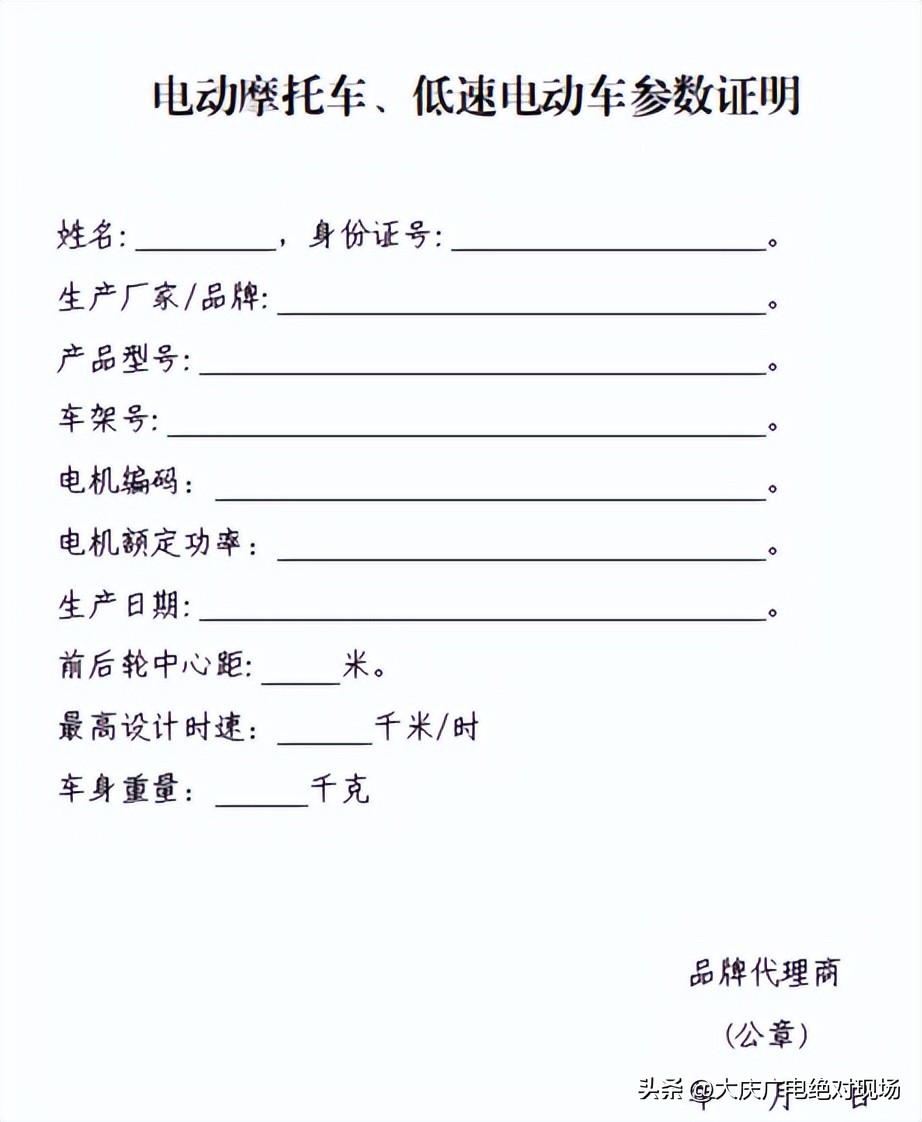 电动摩托车、低速电动车参数证明
姓名:________，身份证号:__________________。
生产厂家/品牌:____________________________。
产品型号:________________________________。
车架号:__________________________________。
电机编码：_______________________________。
电机额定功率：____________________________。
生产日期:________________________________。
前后轮中心距:_____米。
最高设计时速：______千米/时
车身重量：______千克
品牌代理商
(公章)
年 月 日
头条 @大庆广电绝对现场